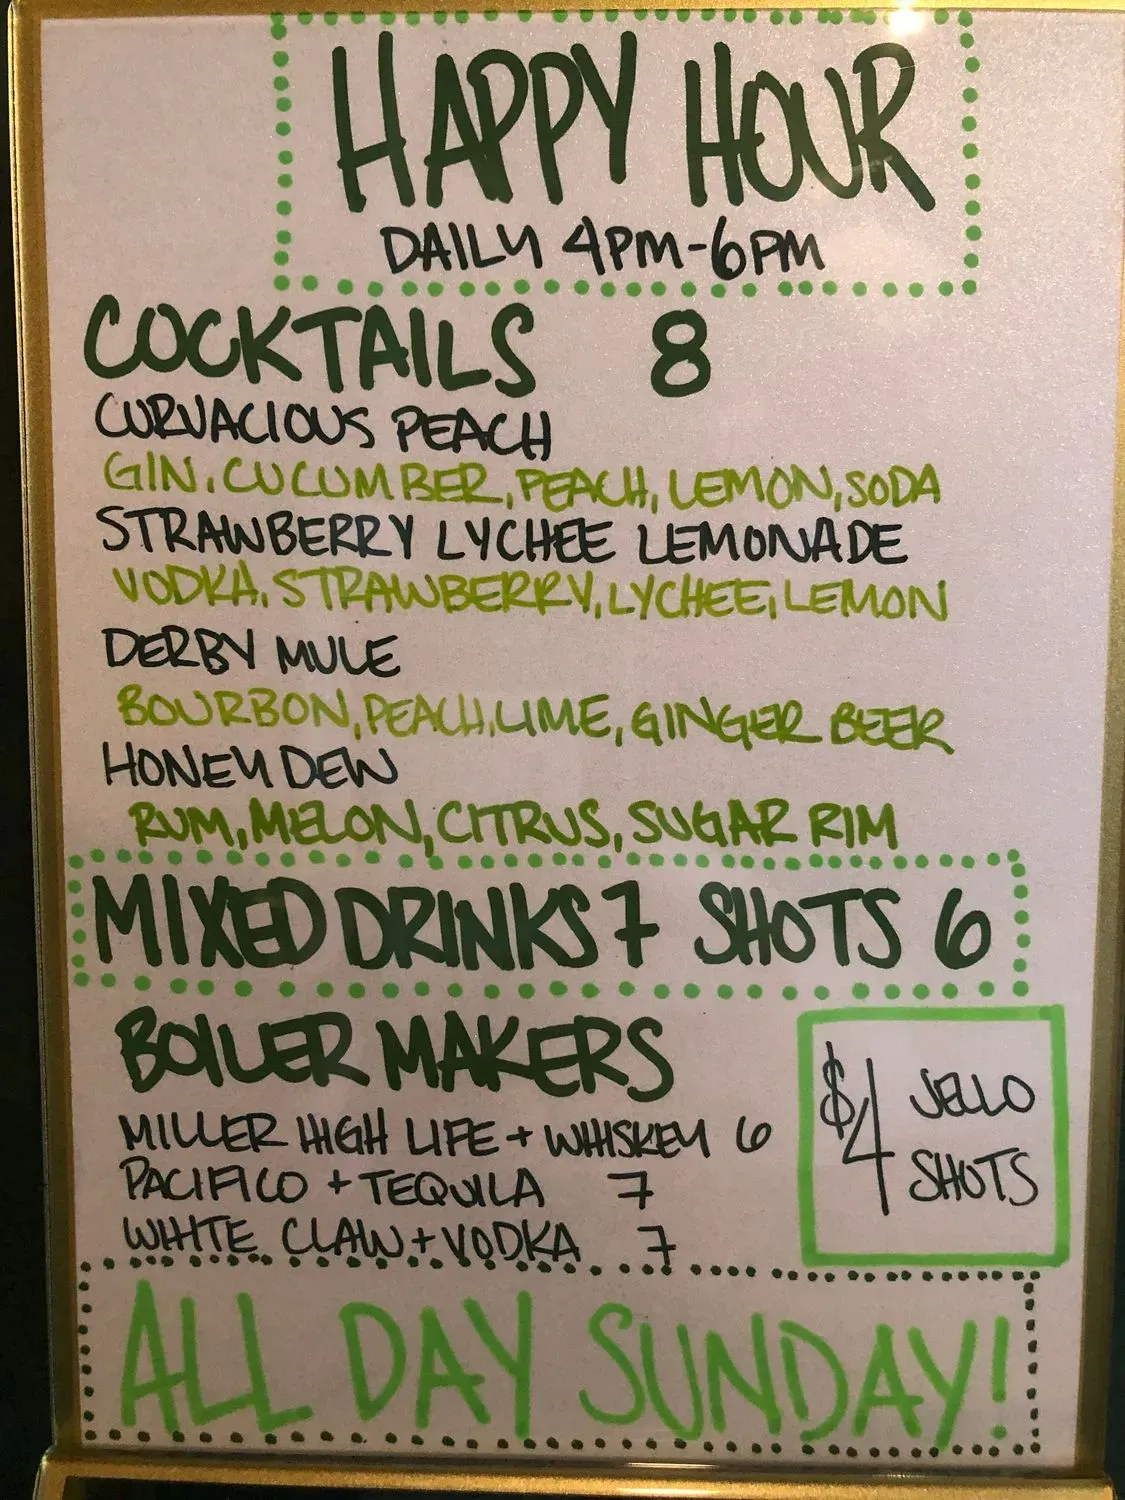 HAPPY HOUR
DAILY 4PM-6PM
COCKTAILS 8
CURVACIOUS PEACH
GIN, CUCUMBER, PEACH, LEMON, SODA
STRAWBERRY LYCHEE LEMONADE
VODKA, STRAWBERRY, LYCHEE, LEMON
DERBY MULE
BOURBON, PEACH, LIME, GINGER BEER
HONEY DEW
RUM, MELON, CITRUS, SUGAR RIM
MIXED DRINKS 7 SHOTS 6
BOILER MAKERS
MILLER HIGH LIFE + WHISKEY 6
PACIFICO + TEQUILA 7
WHITE CLAW + VODKA 7
$4 JELLO
SHOTS
ALL DAY SUNDAY!